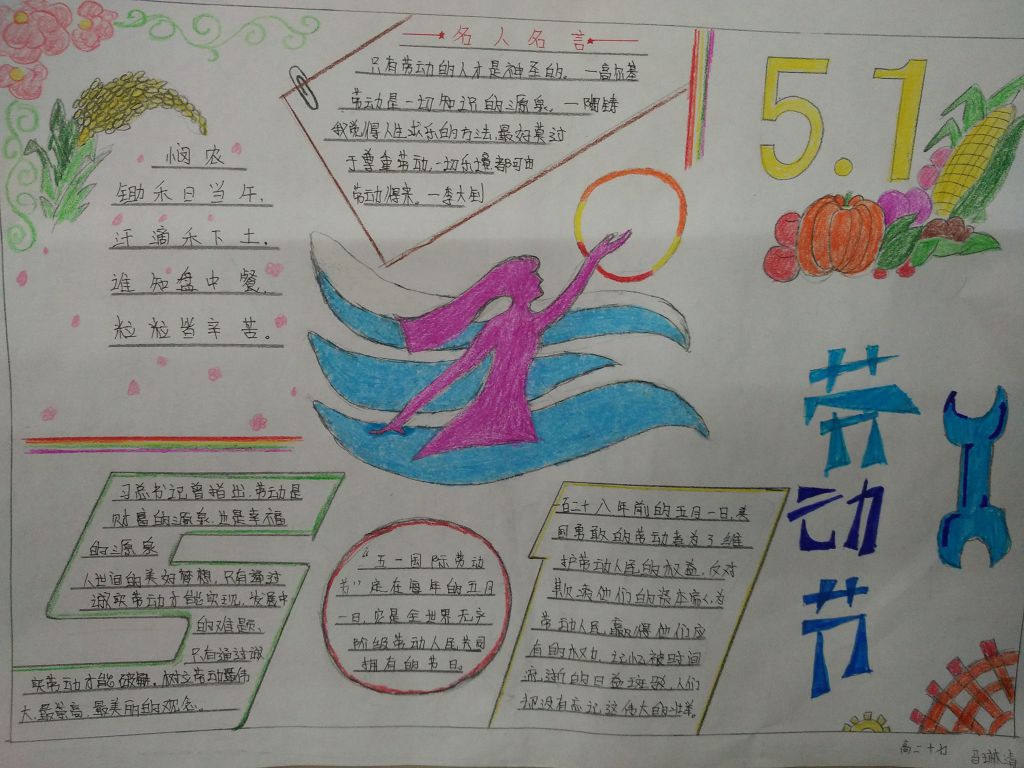 名人名言
只有劳动的人才是神圣的。—高尔基
劳动是一切知识的源泉。—陶铸
我觉得人生求乐的方法最好莫过
于尊重劳动,一切乐境都可由
劳动得来。—李大钊
5.1
悯农
锄禾日当午,
汗滴禾下土。
谁知盘中餐,
粒粒皆辛苦。
劳动节
习总书记曾指出,劳动是
财富的源泉,也是幸福
的源泉
人世间的美好梦想,只有通过
诚实劳动才能实现,发展中
的难题、
只有通过诚
实劳动才能破解,树立劳动最伟
大、最崇高、最美丽的观念。
“五一国际劳动
节”定在每年的五月
一日,它是全世界无产
阶级劳动人民共同
拥有的节日。
一百二十八年前的五月一日,美
国勇敢的劳动者为了维
护劳动人民的权益,反对
欺压他们的资本家,为
劳动人民赢得他们应
有的权力,记忆被时间
流逝的日益斑驳,人们
却没有忘记这伟大的壮举。
高二十七